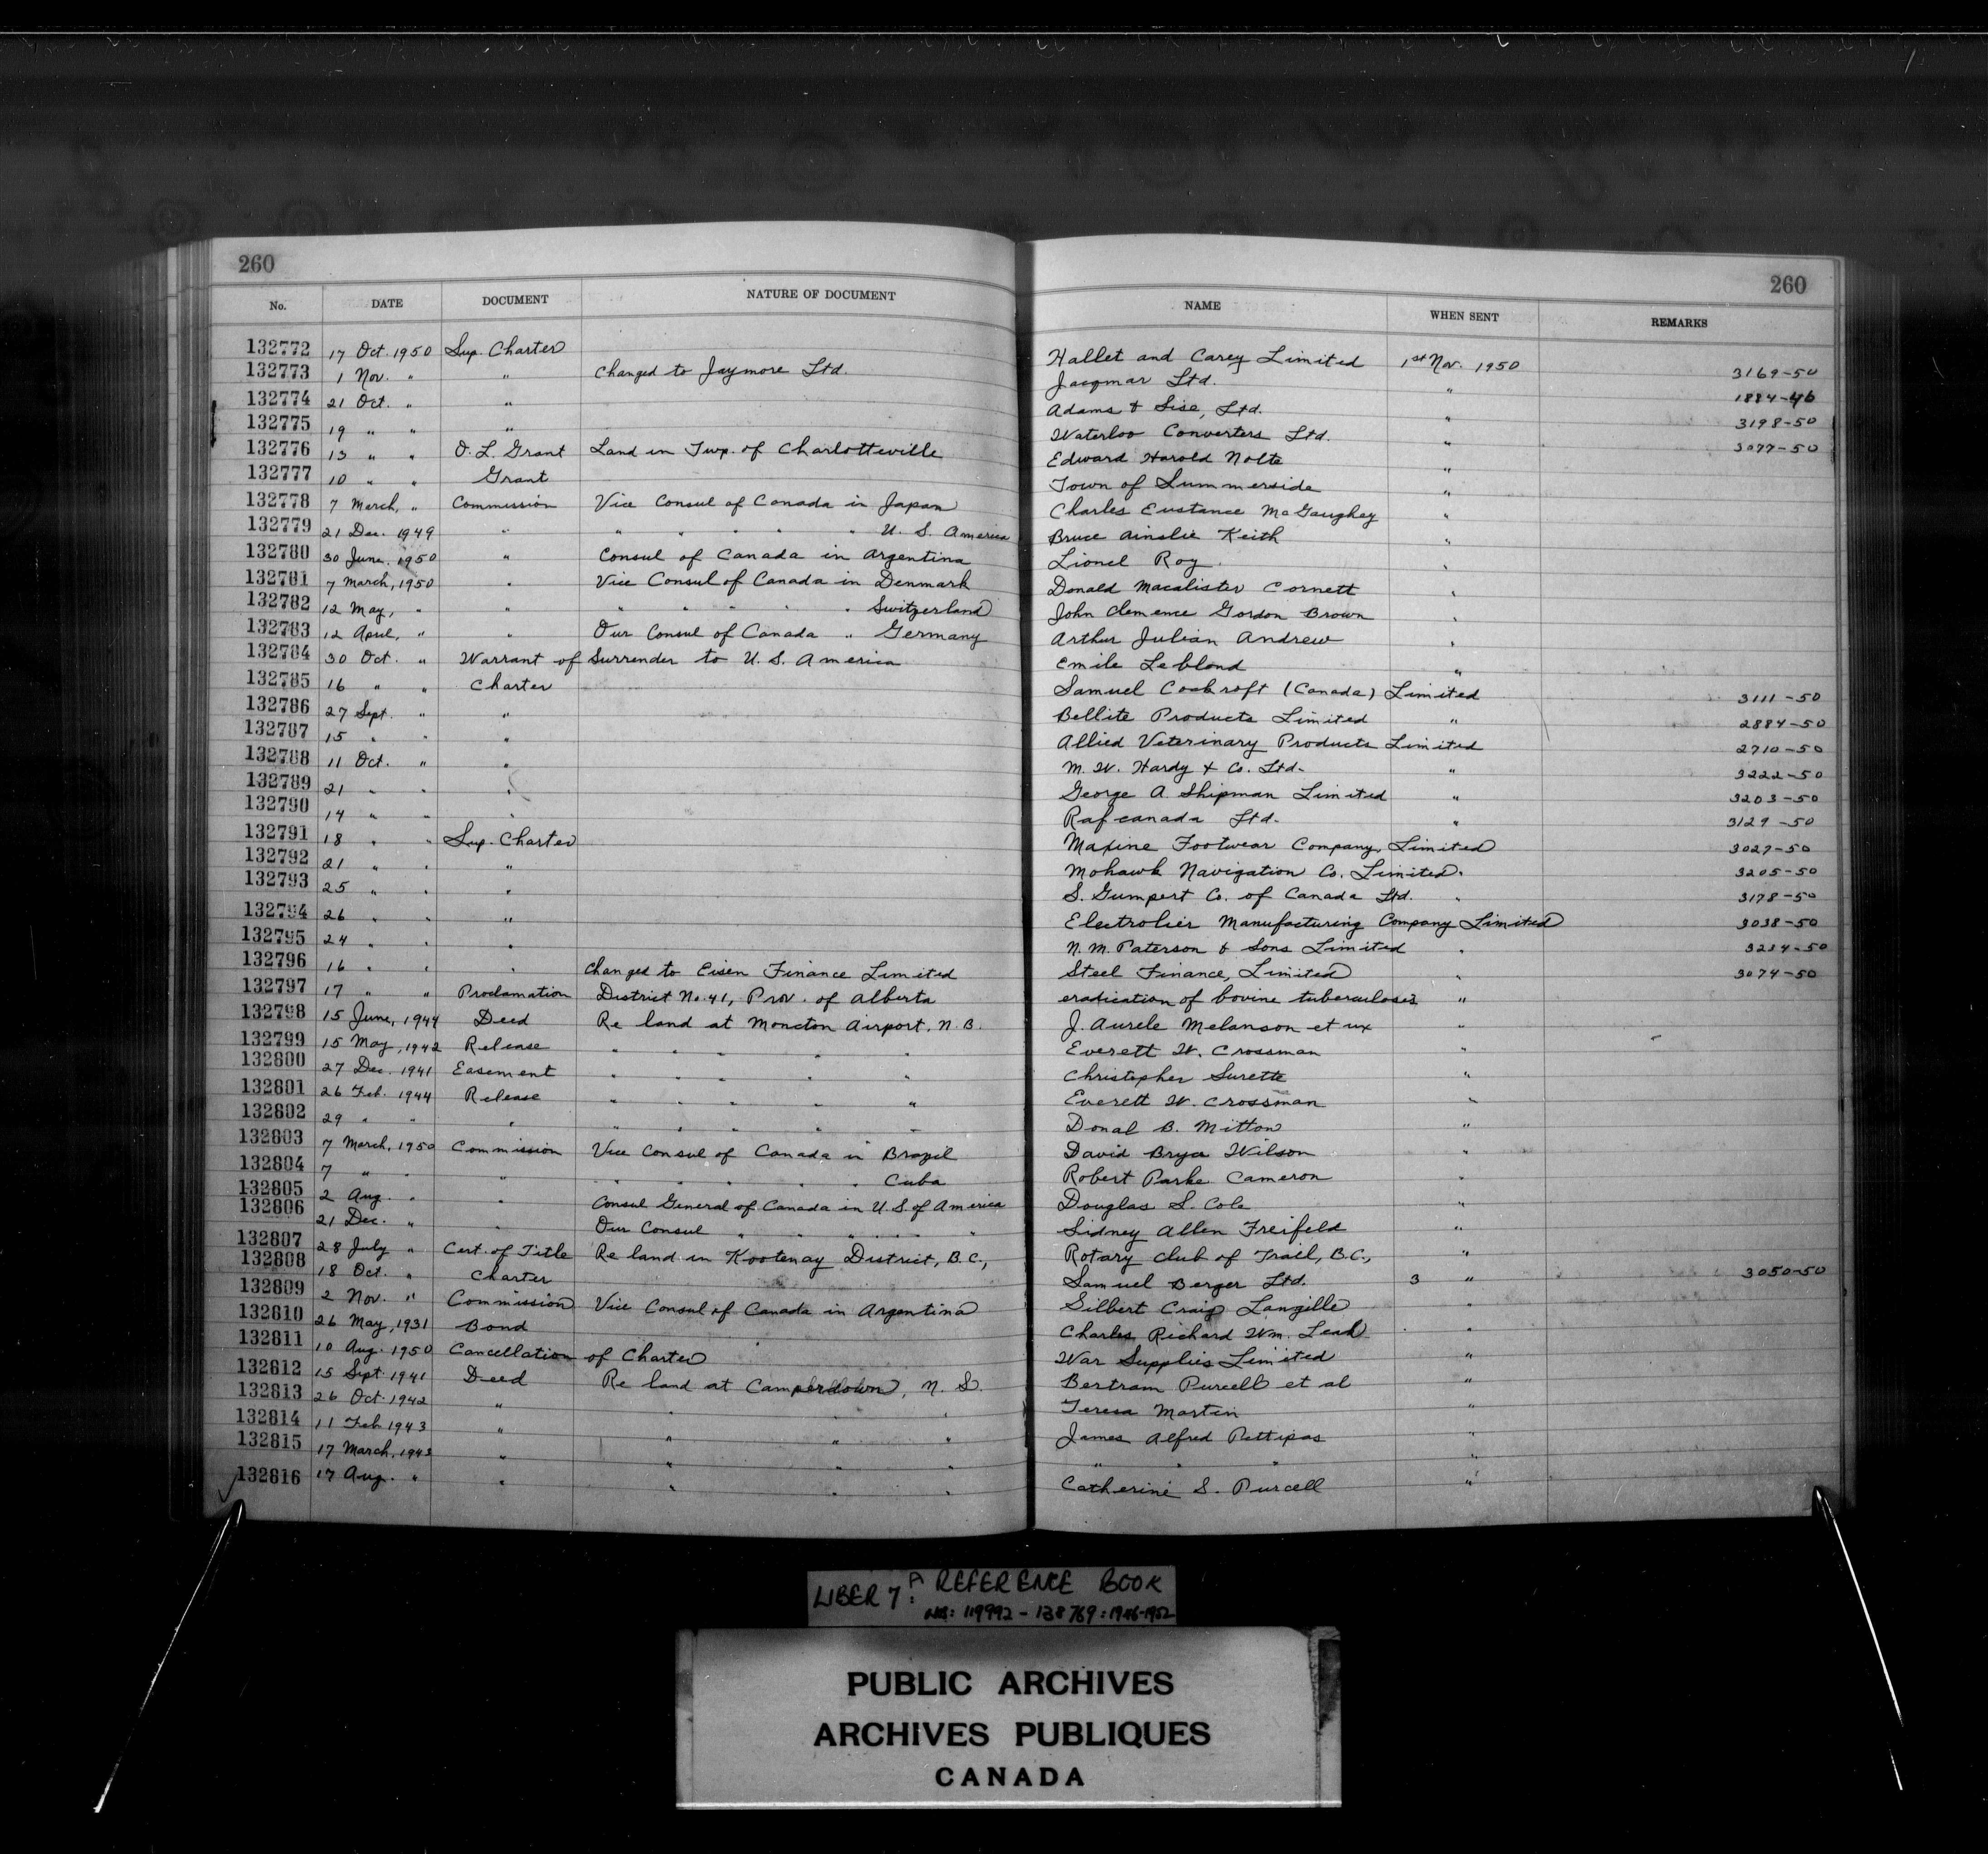 260 260
No. DATE DOCUMENT NATURE OF DOCUMENT NAME WHEN SENT REMARKS
132772 17 Oct. 1950 Sup. Charter Hallet and Carey Limited 1st Nov. 1950 3169-50
132773 1 Nov. " " Changed to Jaymore Ltd. Jacqmar Ltd. " 1884-46
132774 21 Oct. " " Adams & Sise, Ltd. " 3198-50
132775 19 " " " Waterloo Converters Ltd. " 3077-50
132776 13 " " O. L. Grant Land in Twp. of Charlotteville Edward Harold Nolte "
132777 10 " " Grant Town of Summerside "
132778 7 March, " Commission Vice Consul of Canada in Japan Charles Eustance McGaughey "
132779 21 Dec. 1949 " " " " " " U. S. America Bruce Ainslie Keith "
132780 30 June. 1950 " Consul of Canada in Argentina Lionel Roy "
132781 7 March, 1950 " Vice Consul of Canada in Denmark Donald Macalister Cornett "
132782 12 May, " " " " " " " Switzerland John Clemence Gordon Brown "
132783 12 April, " " Our Consul of Canada " Germany Arthur Julian Andrew "
132784 30 Oct. " Warrant of Surrender to U. S. America Emile Leblond "
132785 16 " " Charter Samuel Cockroft (Canada) Limited 3111-50
132786 27 Sept. " " Bellite Products Limited " 2884-50
132787 15 " " " Allied Veterinary Products Limited 2710-50
132788 11 Oct. " " M. W. Hardy & Co. Ltd. " 3222-50
132789 21 " " " George A. Shipman Limited " 3203-50
132790 14 " " " Rafcanada Ltd. " 3129-50
132791 18 " " Sup. Charter Maxine Footwear Company, Limited 3027-50
132792 21 " " " Mohawk Navigation Co. Limited. 3205-50
132793 25 " " " S. Gumpert Co. of Canada Ltd. " 3178-50
132794 26 " " " Electrolier Manufacturing Company Limited 3038-50
132795 24 " " " N. M. Paterson & Sons Limited " 3234-50
132796 16 " " " Changed to Eisen Finance Limited Steel Finance, Limited " 3074-50
132797 17 " " Proclamation District No. 41, Prov. of Alberta eradication of bovine tuberculosis "
132798 15 June, 1944 Deed Re land at Moncton Airport, N. B. J. Aurele Melanson et ux "
132799 15 May, 1942 Release " " " " " Everett W. Crossman "
132800 27 Dec. 1941 Easement " " " " " Christopher Surette "
132801 26 Feb. 1944 Release " " " " " Everett W. Crossman "
132802 29 " " " " " " " " Donal B. Mitton "
132803 7 March, 1950 Commission Vice Consul of Canada in Brazil David Bryce Wilson "
132804 7 " " " " " " " " Cuba Robert Parke Cameron "
132805 2 Aug. " " Consul General of Canada in U. S. of America Douglas S. Cole "
132806 21 Dec. " " Our Consul " " " " " " Sidney Allen Freifeld "
132807 28 July " Cert. of Title Re land in Kootenay District, B.C., Rotary Club of Trail, B.C., "
132808 18 Oct. " Charter Samuel Berger Ltd. 3 " 3050-50
132809 2 Nov. " Commission Vice Consul of Canada in Argentina Gilbert Craig Langille "
132810 26 May, 1931 Bond Charles Richard Wm. Lead "
132811 10 Aug. 1950 Cancellation of Charter War Supplies Limited "
132812 15 Sept. 1941 Deed Re land at Camperdown, N. S. Bertram Purcell et al "
132813 26 Oct. 1942 " " " " Teresa Martin "
132814 11 Feb 1943 " " " " James Alfred Pettipas "
132815 17 March, 1943 " " " " " " " "
132816 17 Aug. " " " " " Catherine S. Purcell "
LIBER 7A: REFERENCE BOOK
NOS: 119992 - 138769: 1946-1952
PUBLIC ARCHIVES
ARCHIVES PUBLIQUES
CANADA